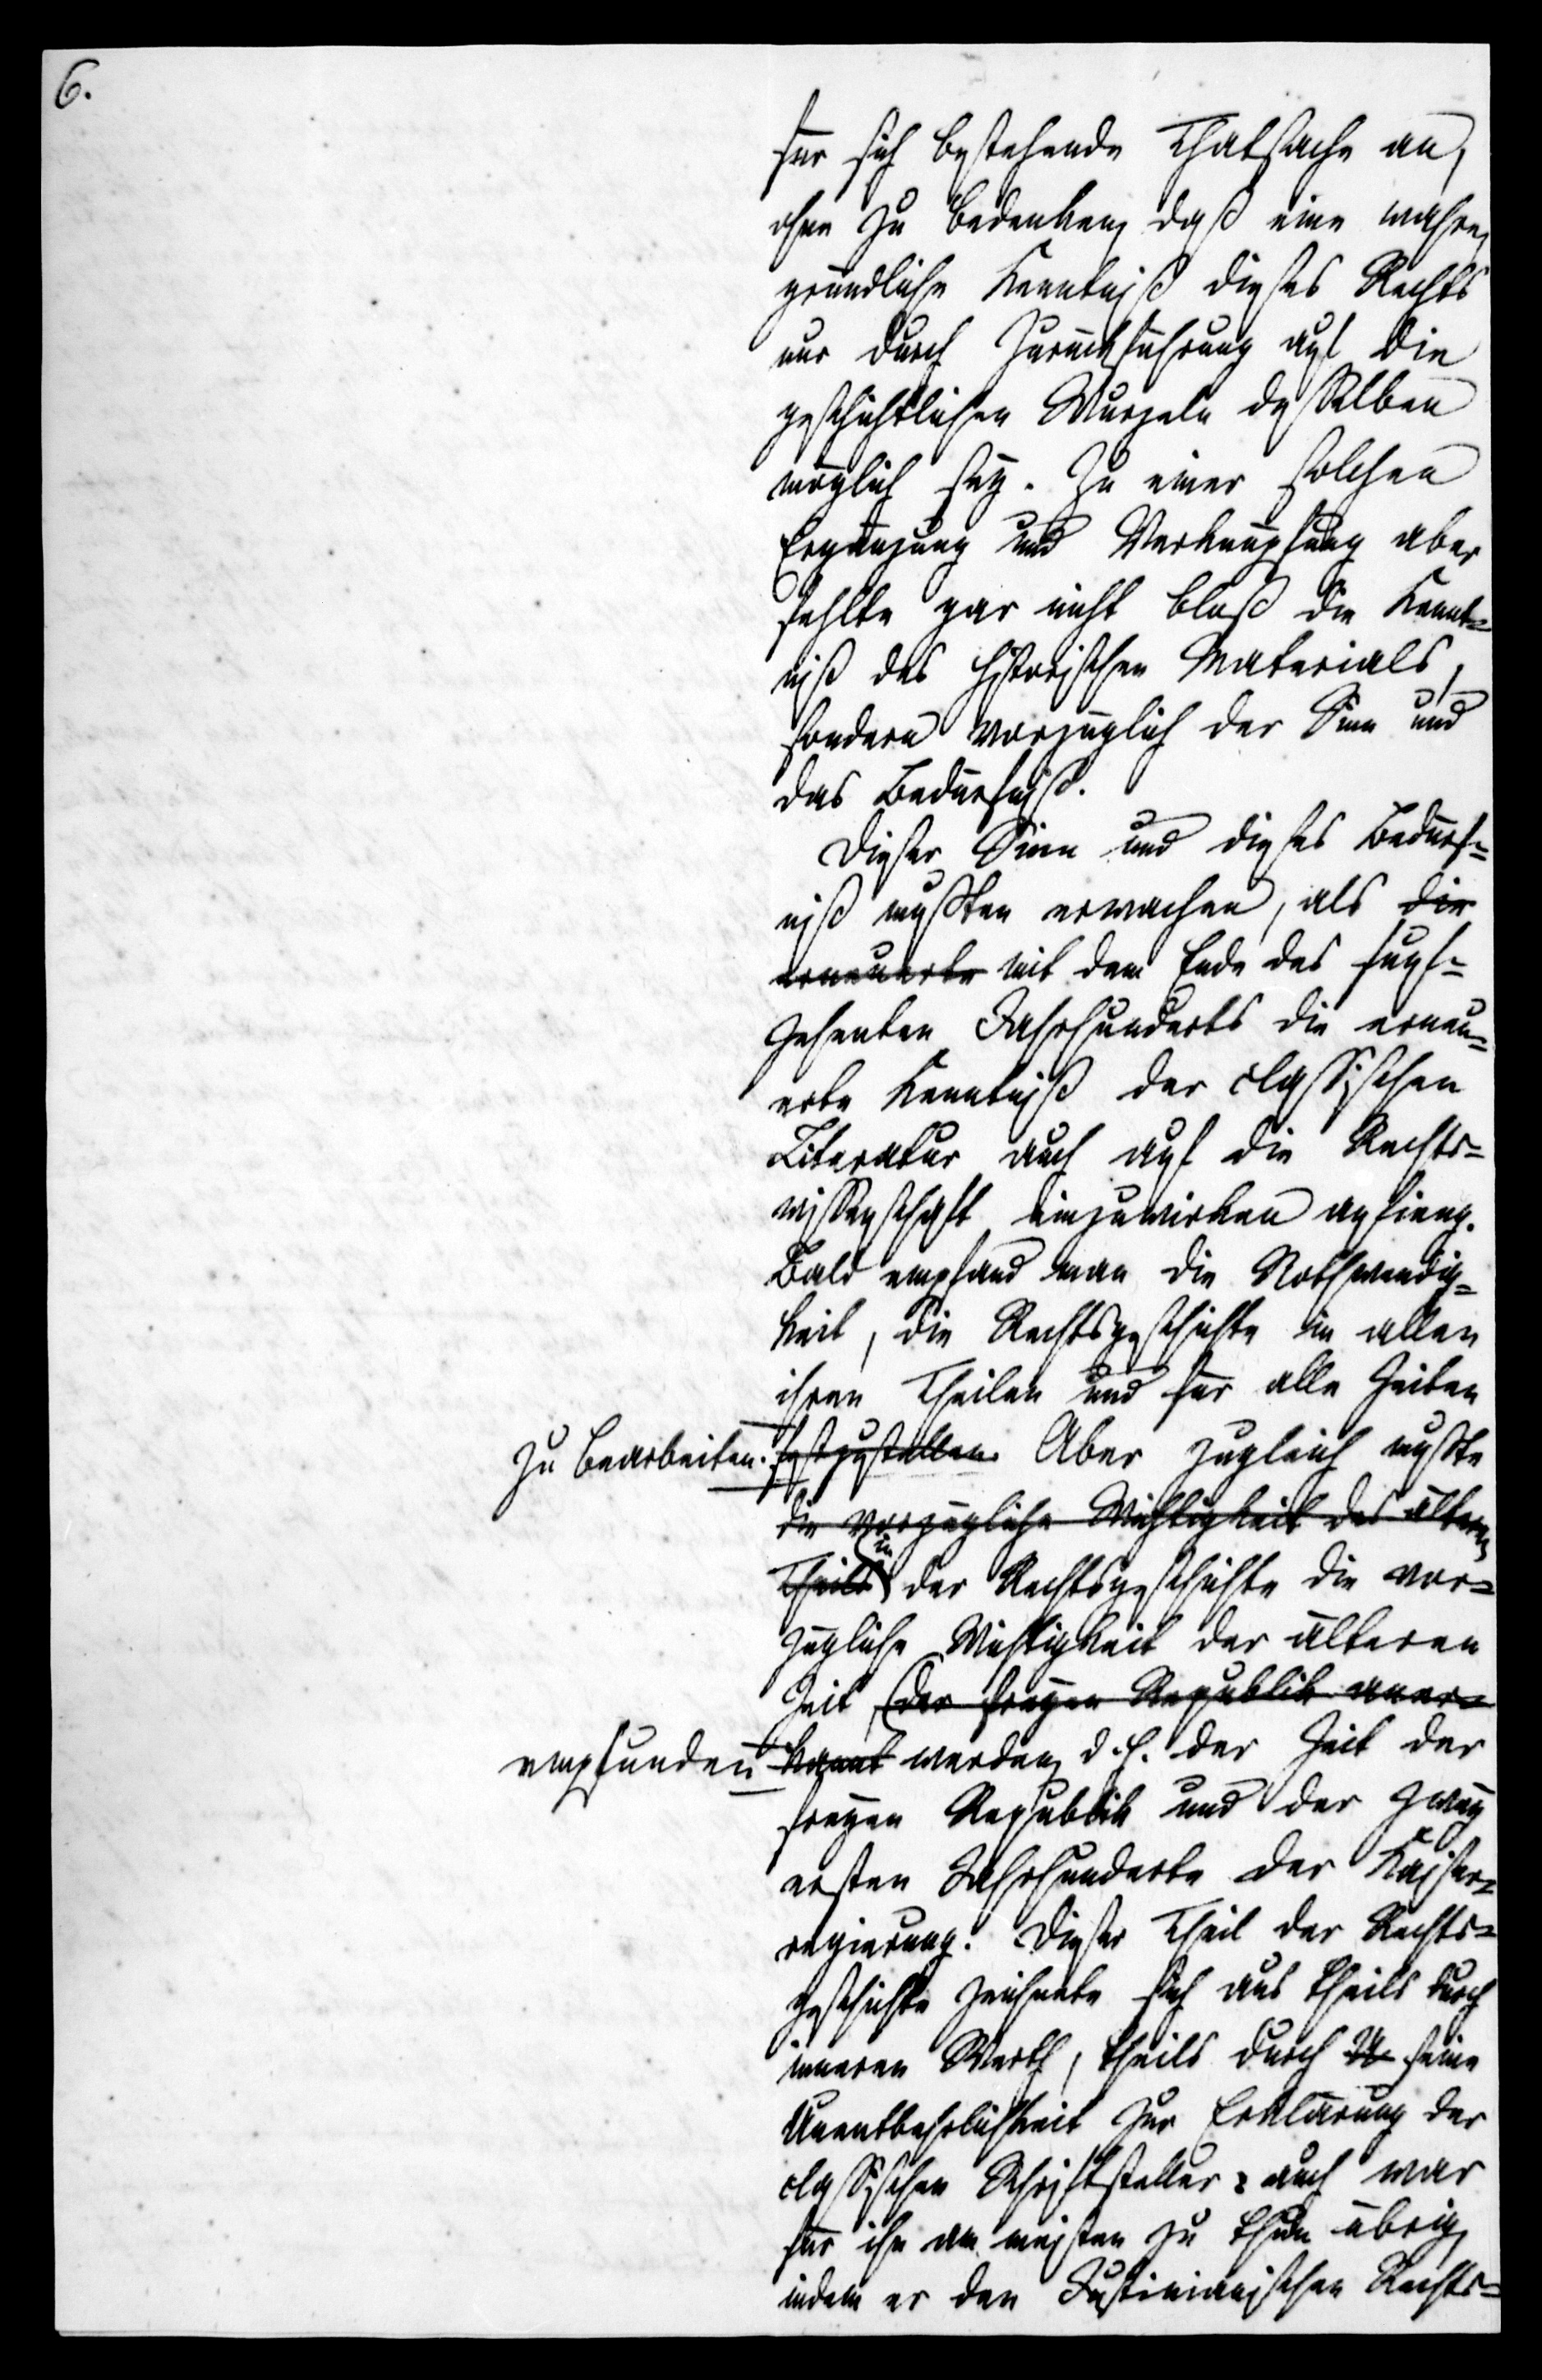 6.
für sich bestehende Thatsache an,
ohne zu bedenken, daß eine wahre,
gründliche Kenntniß dieses Rechts
nur durch Zurückführung auf die
geschichtlichen Wurzeln desselben
möglich sey. Zu einer solchen
Ergänzung und Verknüpfung aber
fehlte gar nicht bloß die Kennt=
niß des historischen Materials,
sondern vorzüglich der Sinn und
das Bedürfniß.
Dieser Sinn und dieses Bedürf=
niß mußten erwachen, als die
erneuerte mit dem Ende des funf=
zehenten Jahrhunderts die erneu=
erte Kenntniß der classischen
Literatur auch auf die Rechts=
wissenschaft einzuwirken anfieng.
Bald empfand man die Nothwendig=
keit, die Rechtsgeschichte in allen
ihren Theilen und für alle Zeiten
zu bearbeiten. festzustellen. Aber zugleich mußte
die vorzügliche Wichtigkeit des älteren
Theils in der Rechtsgeschichte die vor=
zügliche Wichtigkeit der älteren
Zeit (der freyen Republik aner=
empfunden kannt werden, d. h. der Zeit der
freyen Republik und der zwey
ersten Jahrhunderte der Kaiser=
regierung. Dieser Theil der Rechts=
geschichte zeichnete sich aus theils durch
inneren Werth, theils durch U seine
Unentbehrlichkeit zur Erklärung der
classischen Schriftsteller: auch war
für ihn am meisten zu thun übrig,
indem er den Justinianischen Rechts=